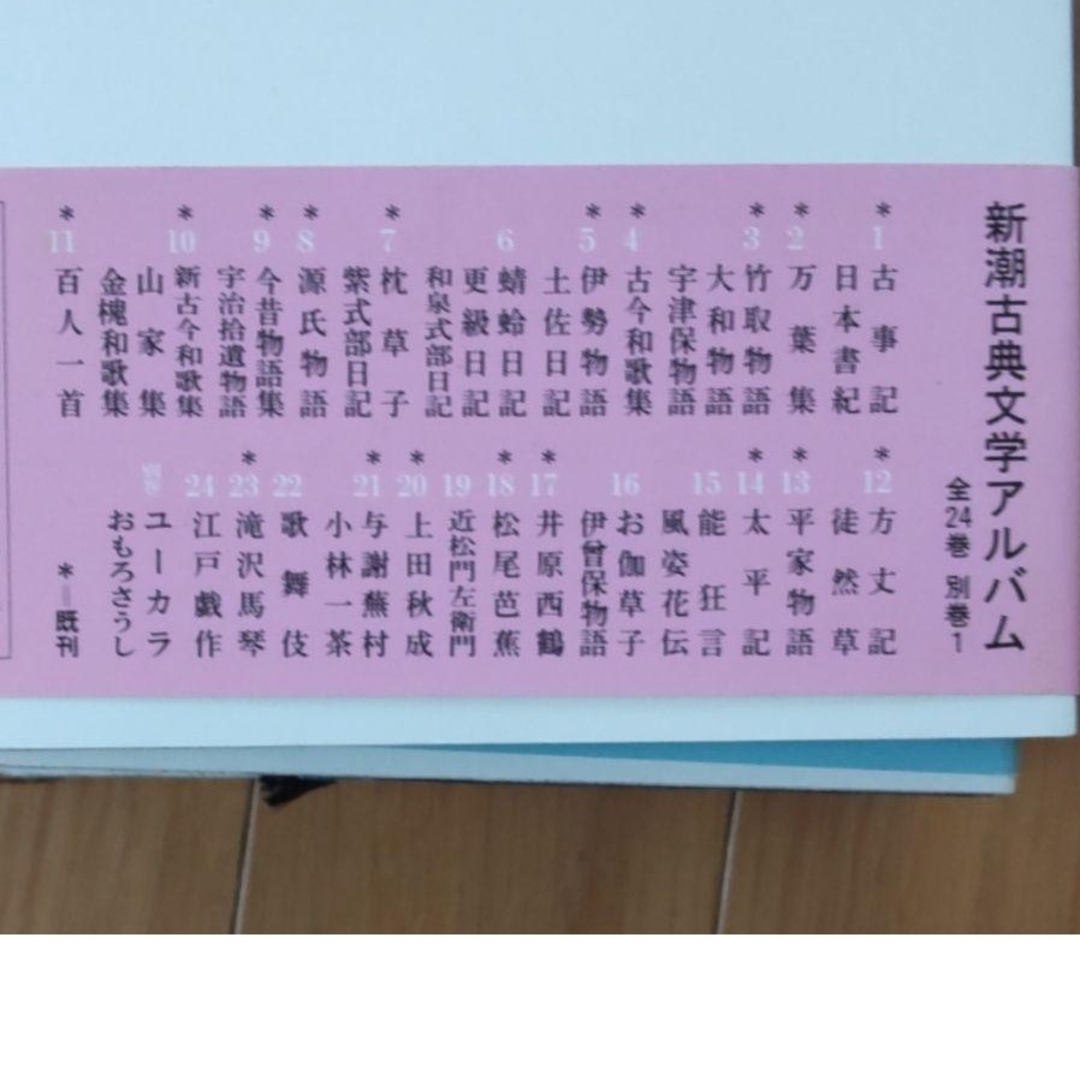 新潮古典文学アルバム
全24巻 別巻1
*1 古事記
日本書紀
*2 万葉集
*3 竹取物語
大和物語
宇津保物語
*4 古今和歌集
*5 伊勢物語
土佐日記
6 蜻蛉日記
更級日記
和泉式部日記
*7 枕草子
紫式部日記
*8 源氏物語
*9 今昔物語集
宇治拾遺物語
*10 新古今和歌集
山家集
金槐和歌集
*11 百人一首
*12 方丈記
徒然草
*13 平家物語
*14 太平記
15 能狂言
風姿花伝
16 お伽草子
伊曾保物語
*17 井原西鶴
*18 松尾芭蕉
19 近松門左衛門
*20 上田秋成
*21 与謝蕪村
小林一茶
22 歌舞伎
*23 滝沢馬琴
24 江戸戯作
別巻 ユーカラ
おもろさうし
*=既刊